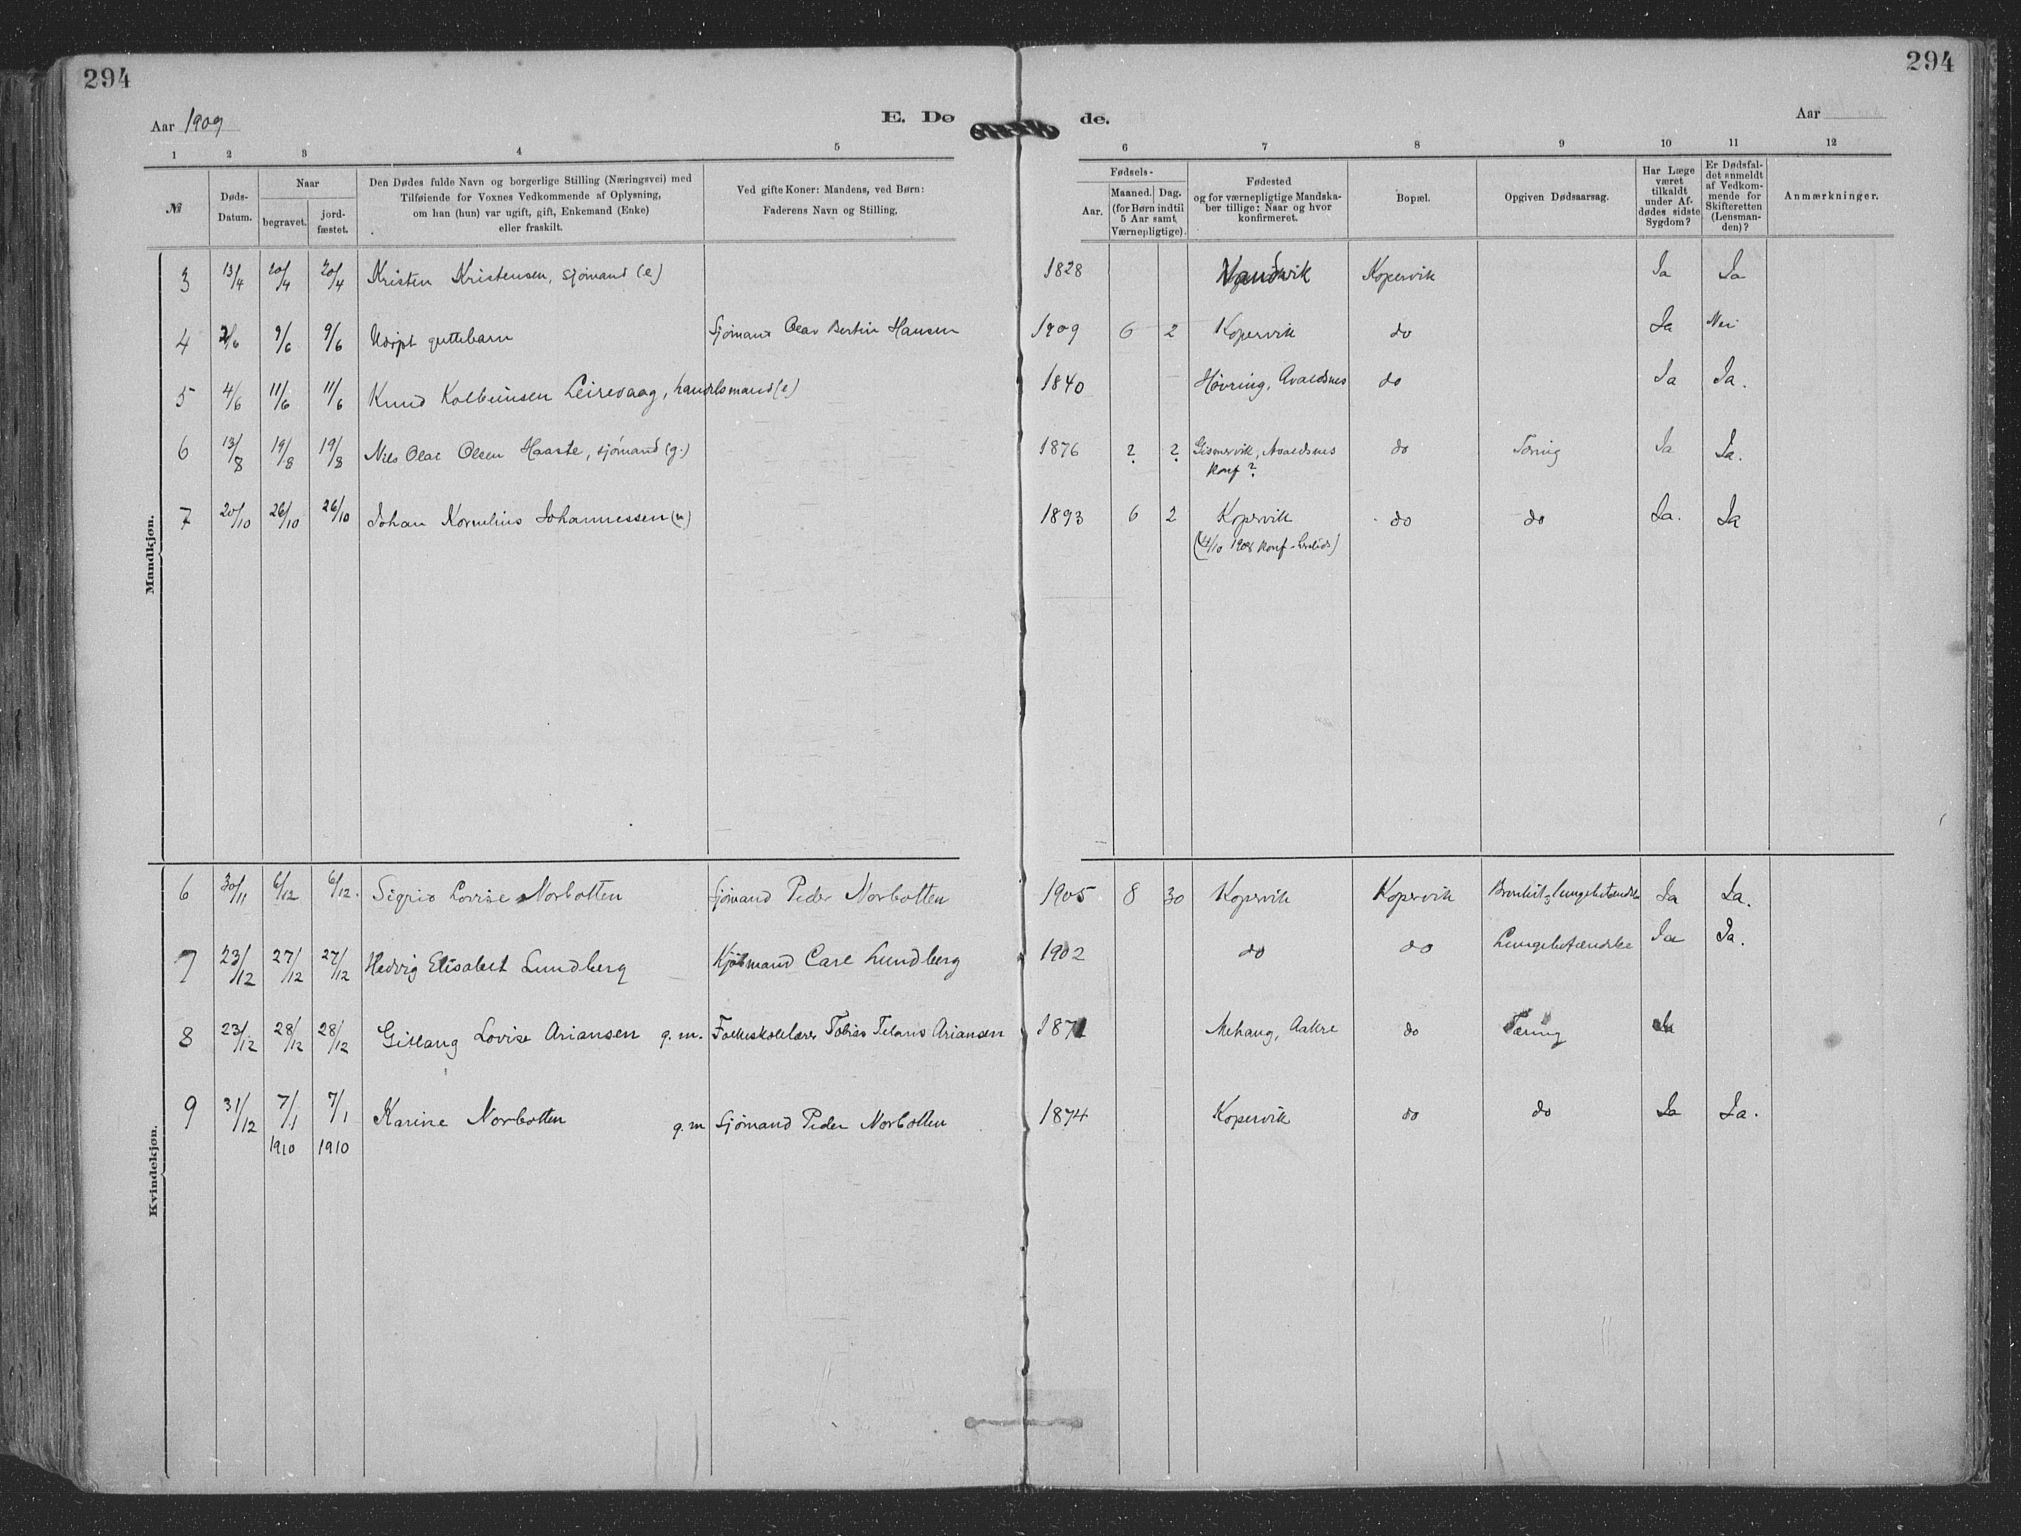 294
294
Aar 1909
E. Dø
de.
Aar
1 2 3 4 5 6 7 8 9 10 11 12
№
Døds-
Datum.
Naar
begravet.
jord-
fæstet.
Den Dødes fulde Navn og borgerlige Stilling (Næringsvei) med
Tilføiende for Voxnes Vedkommende af Oplysning,
om han (hun) var ugift, gift, Enkemand (Enke)
eller fraskilt.
Ved gifte Koner: Mandens, ved Børn:
Faderens Navn og Stilling.
Fødsels-
Aar.
Maaned. Dag.
(for Børn indtil
5 Aar samt
Værnepligtige).
Fødested
og for værnepligtige Mandska-
ber tillige: Naar og hvor
konfirmeret.
Bopæl.
Opgiven Dødsaarsag.
Har Læge
været
tilkaldt
under Af-
dødes sidste
Sygdom?
Er Dødsfal-
det anmeldt
af Vedkom-
mende for
Skifteretten
(Lensman-
den)?
Anmærkninger.
Mandkjøn.
3 13/4 20/4 20/4 Kristen Kristensen, sjømand (e) 1828 Kopervik Ja Ja
4 9/6 9/6 Udøpt guttebarn Sjømand Olav Bertin Hansen 1909 6 2 Kopervik do Ja Nei
5 4/6 11/6 11/6 Knud Kolbeinsen Leirvaag, handelsmand (e) 1840 Høvring, Avaldsnes do Ja Ja.
6 13/8 19/8 19/8 Nils Olai Olsen Haaste, sjømand (g.) 1876 ? ? Gismervik, Avaldsnes do Tæring Ja Ja.
Konf ?
7 20/10 26/10 26/10 Johan Kornelius Johannessen (u) 1893 6 2 Kopervik do do Ja. Ja
(4/10 1908 Konf.
Kvindekjøn.
6 30/11 6/12 6/12. Sigrid Lovise Norbotten Sjømand Peder Norbotten 1905 8 30 Kopervik Kopervik Bronkit, lungebetændelse Ja Ja.
7 23/12 27/12 27/12 Hedvig Elisabet Lundberg Kjøbmand Carl Lundberg 1902 do do Lungebetændelse Ja Ja.
8 23/12 28/12 28/12 Gislaug Lovise Ariansen g. m. Folkeskolelærer Tobias Ariansen 1871 Mehaug, Aakre do Tæring Ja
9 31/12 7/1 7/1 Karine Norbotten g. m Sjømand Peder Norbotten 1874 Kopervik do do Ja Ja.
1910 1910